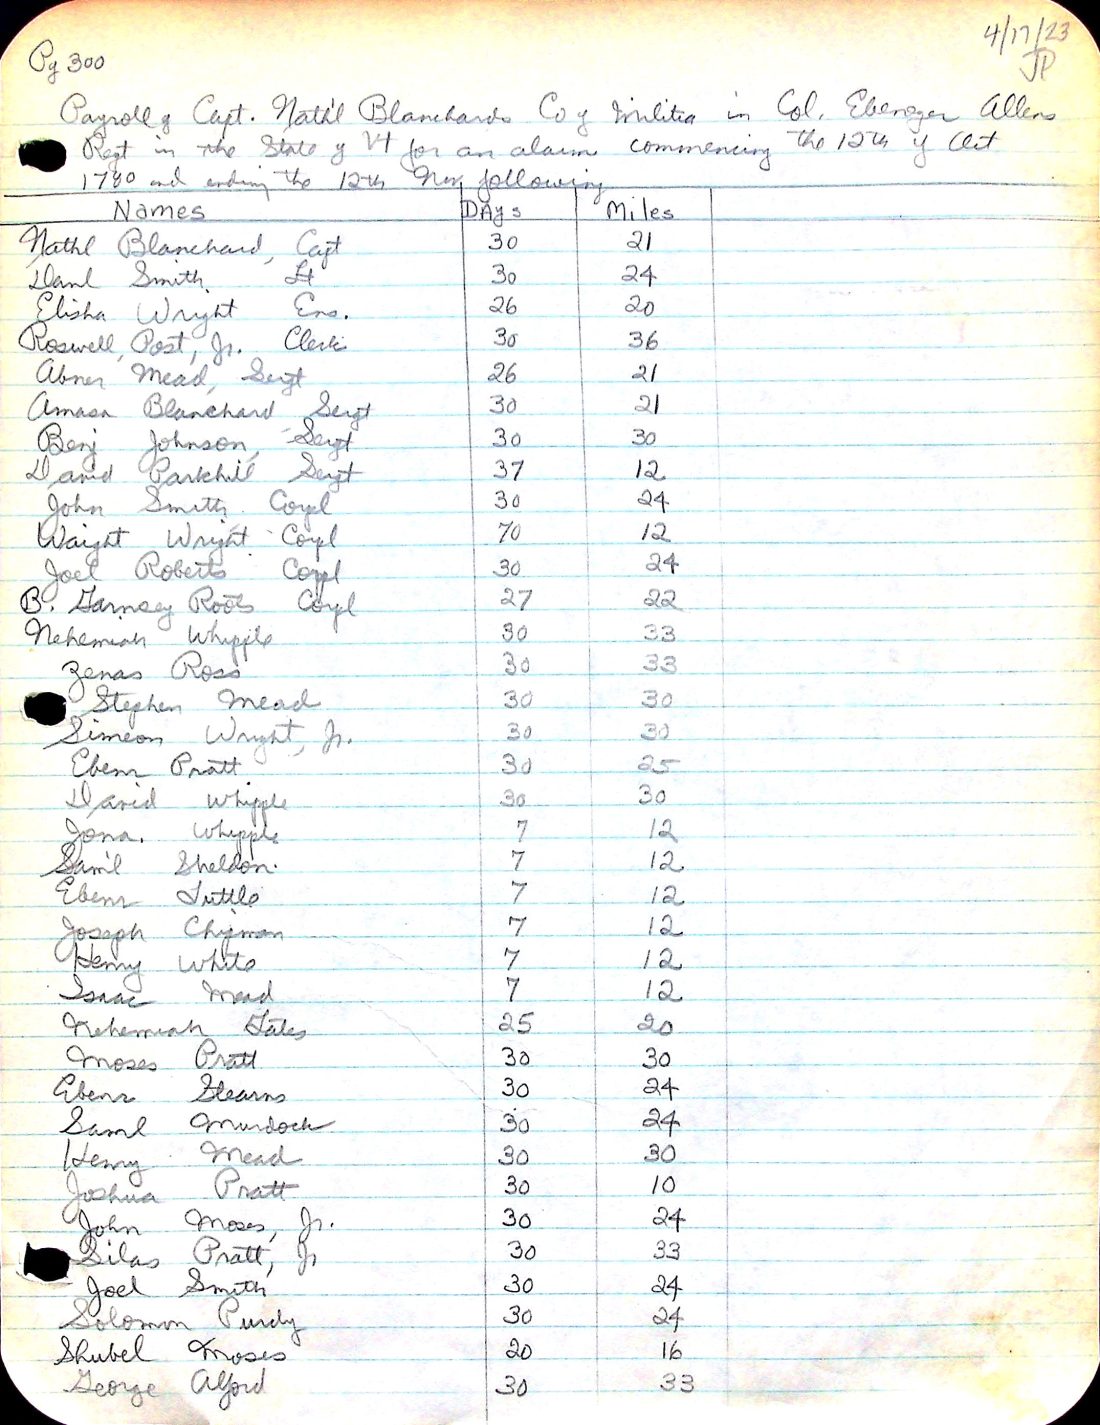 4/17/23
JP
Pg 300
Payroll of Capt. Nath'l Blanchards Co of Militia in Col. Ebenezer Allens
Regt in the State of Vt for an alarm commencing the 12th of Oct
1780 and ending the 12th Nov following
Names DAys Miles
Nathl Blanchard, Capt 30 21
Danl Smith Lt 30 24
Elisha Wright Ens. 26 20
Roswell, Post, Jr. Clerk 30 36
Abner Mead, Sergt 26 21
Amasa Blanchard Sergt 30 21
Benj Johnson, Sergt 30 30
David Parkhil Sergt 37 12
John Smith Corpl 30 24
Waight Wright Corpl 70 12
Joel Roberts Corpl 30 24
B. Garnsey Roots Corpl 27 22
Nehemiah Whipple 30 33
Zenas Ross 30 33
Stephen Mead 30 30
Simeon Wright, Jr. 30 30
Ebenr Pratt 30 25
David Whipple 30 30
Jona. Whipple 7 12
Sam'l Sheldon 7 12
Ebenr Tuttle 7 12
Joseph Chipman 7 12
Henry White 7 12
Isaac Mead 7 12
Nehemiah Gates 25 20
Moses Pratt 30 30
Ebenr Stearns 30 24
Saml Murdock 30 24
Henry Mead 30 30
Joshua Pratt 30 10
John Moses, Jr. 30 24
Silas Pratt, Jr 30 33
Joel Smith 30 24
Solomon Purdy 30 24
Shubel Moses 20 16
George Alford 30 33